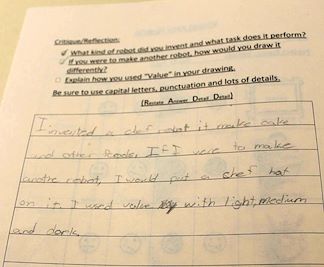 Critique/Reflection:
What kind of robot did you invent and what task does it perform?
If you were to make another robot, how would you draw it
differently?
Explain how you used "Value" in your drawing.
Be sure to use capital letters, punctuation and lots of details.
(Restate Answer Detail Detail)
I invented a chef robot it make cake
and other foods, If I were to make
another robot, I would put a chef hat
on it, I used value with light, medium
and dark.